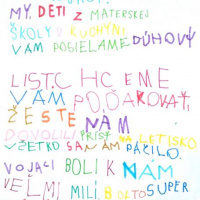 MY, DETI Z MATERSKEJ
ŠKOLY V KUCHYNI
VÁM POSIELAME DÚHOVÝ
LIST. CHCEME
VÁM POĎAKOVAŤ,
ŽE STE NÁM
DOVOLILI PRÍSŤ NA LETISKO.
VŠETKO SA NÁM PÁČILO.
VOJACI BOLI K NÁM
VEĽMI MILÍ. BOLO TO SUPER